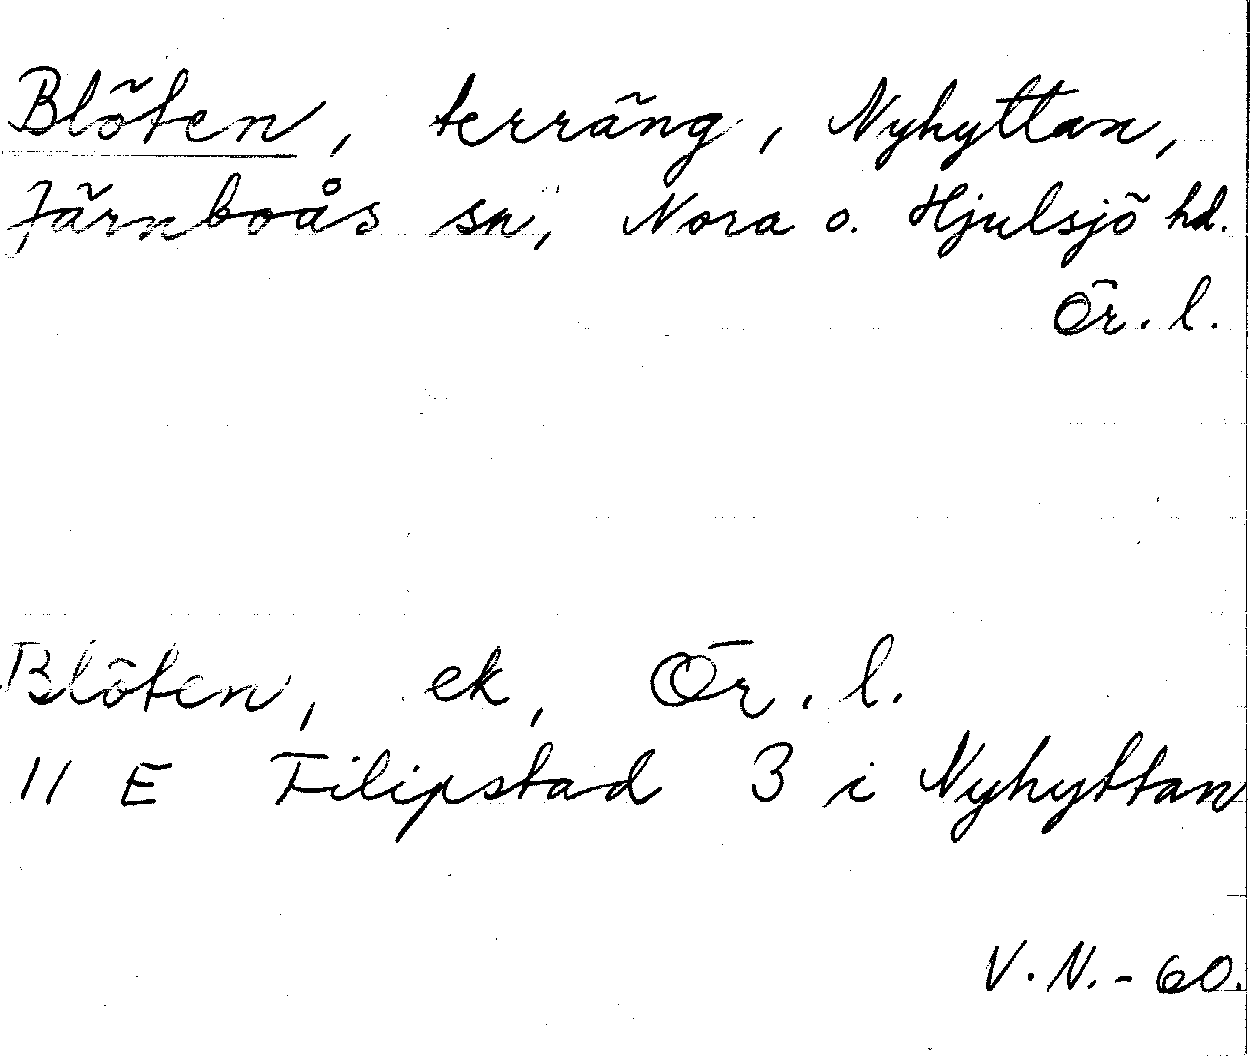 Blöten, terräng, Nyhyttan,
Järnboås sn, Nora o. Hjulsjö hd.
Ör. l.
Blöten, ek, Ör. l.
11 E Filipstad 3 i Nyhyttan
V. N. - 60.